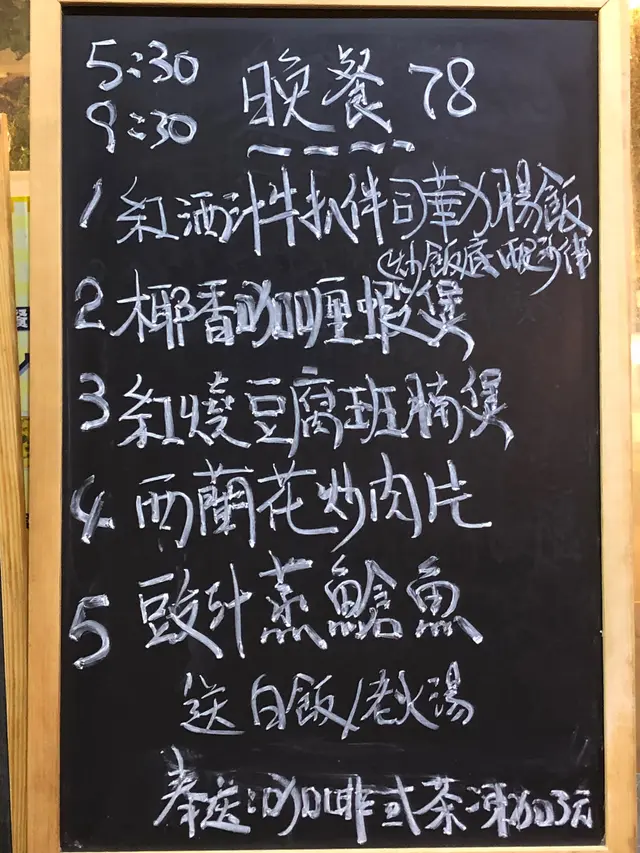 5:30
9:30
晚餐 78
1 紅洒汁牛扒伴司華力腸飯
(炒飯底
2 椰香咖喱蝦煲
3 紅燒豆腐班腩煲
4 西蘭花炒肉片
5 豉汁蒸鱠魚
送白飯/老火湯
奉送:咖啡或茶,凍加3元